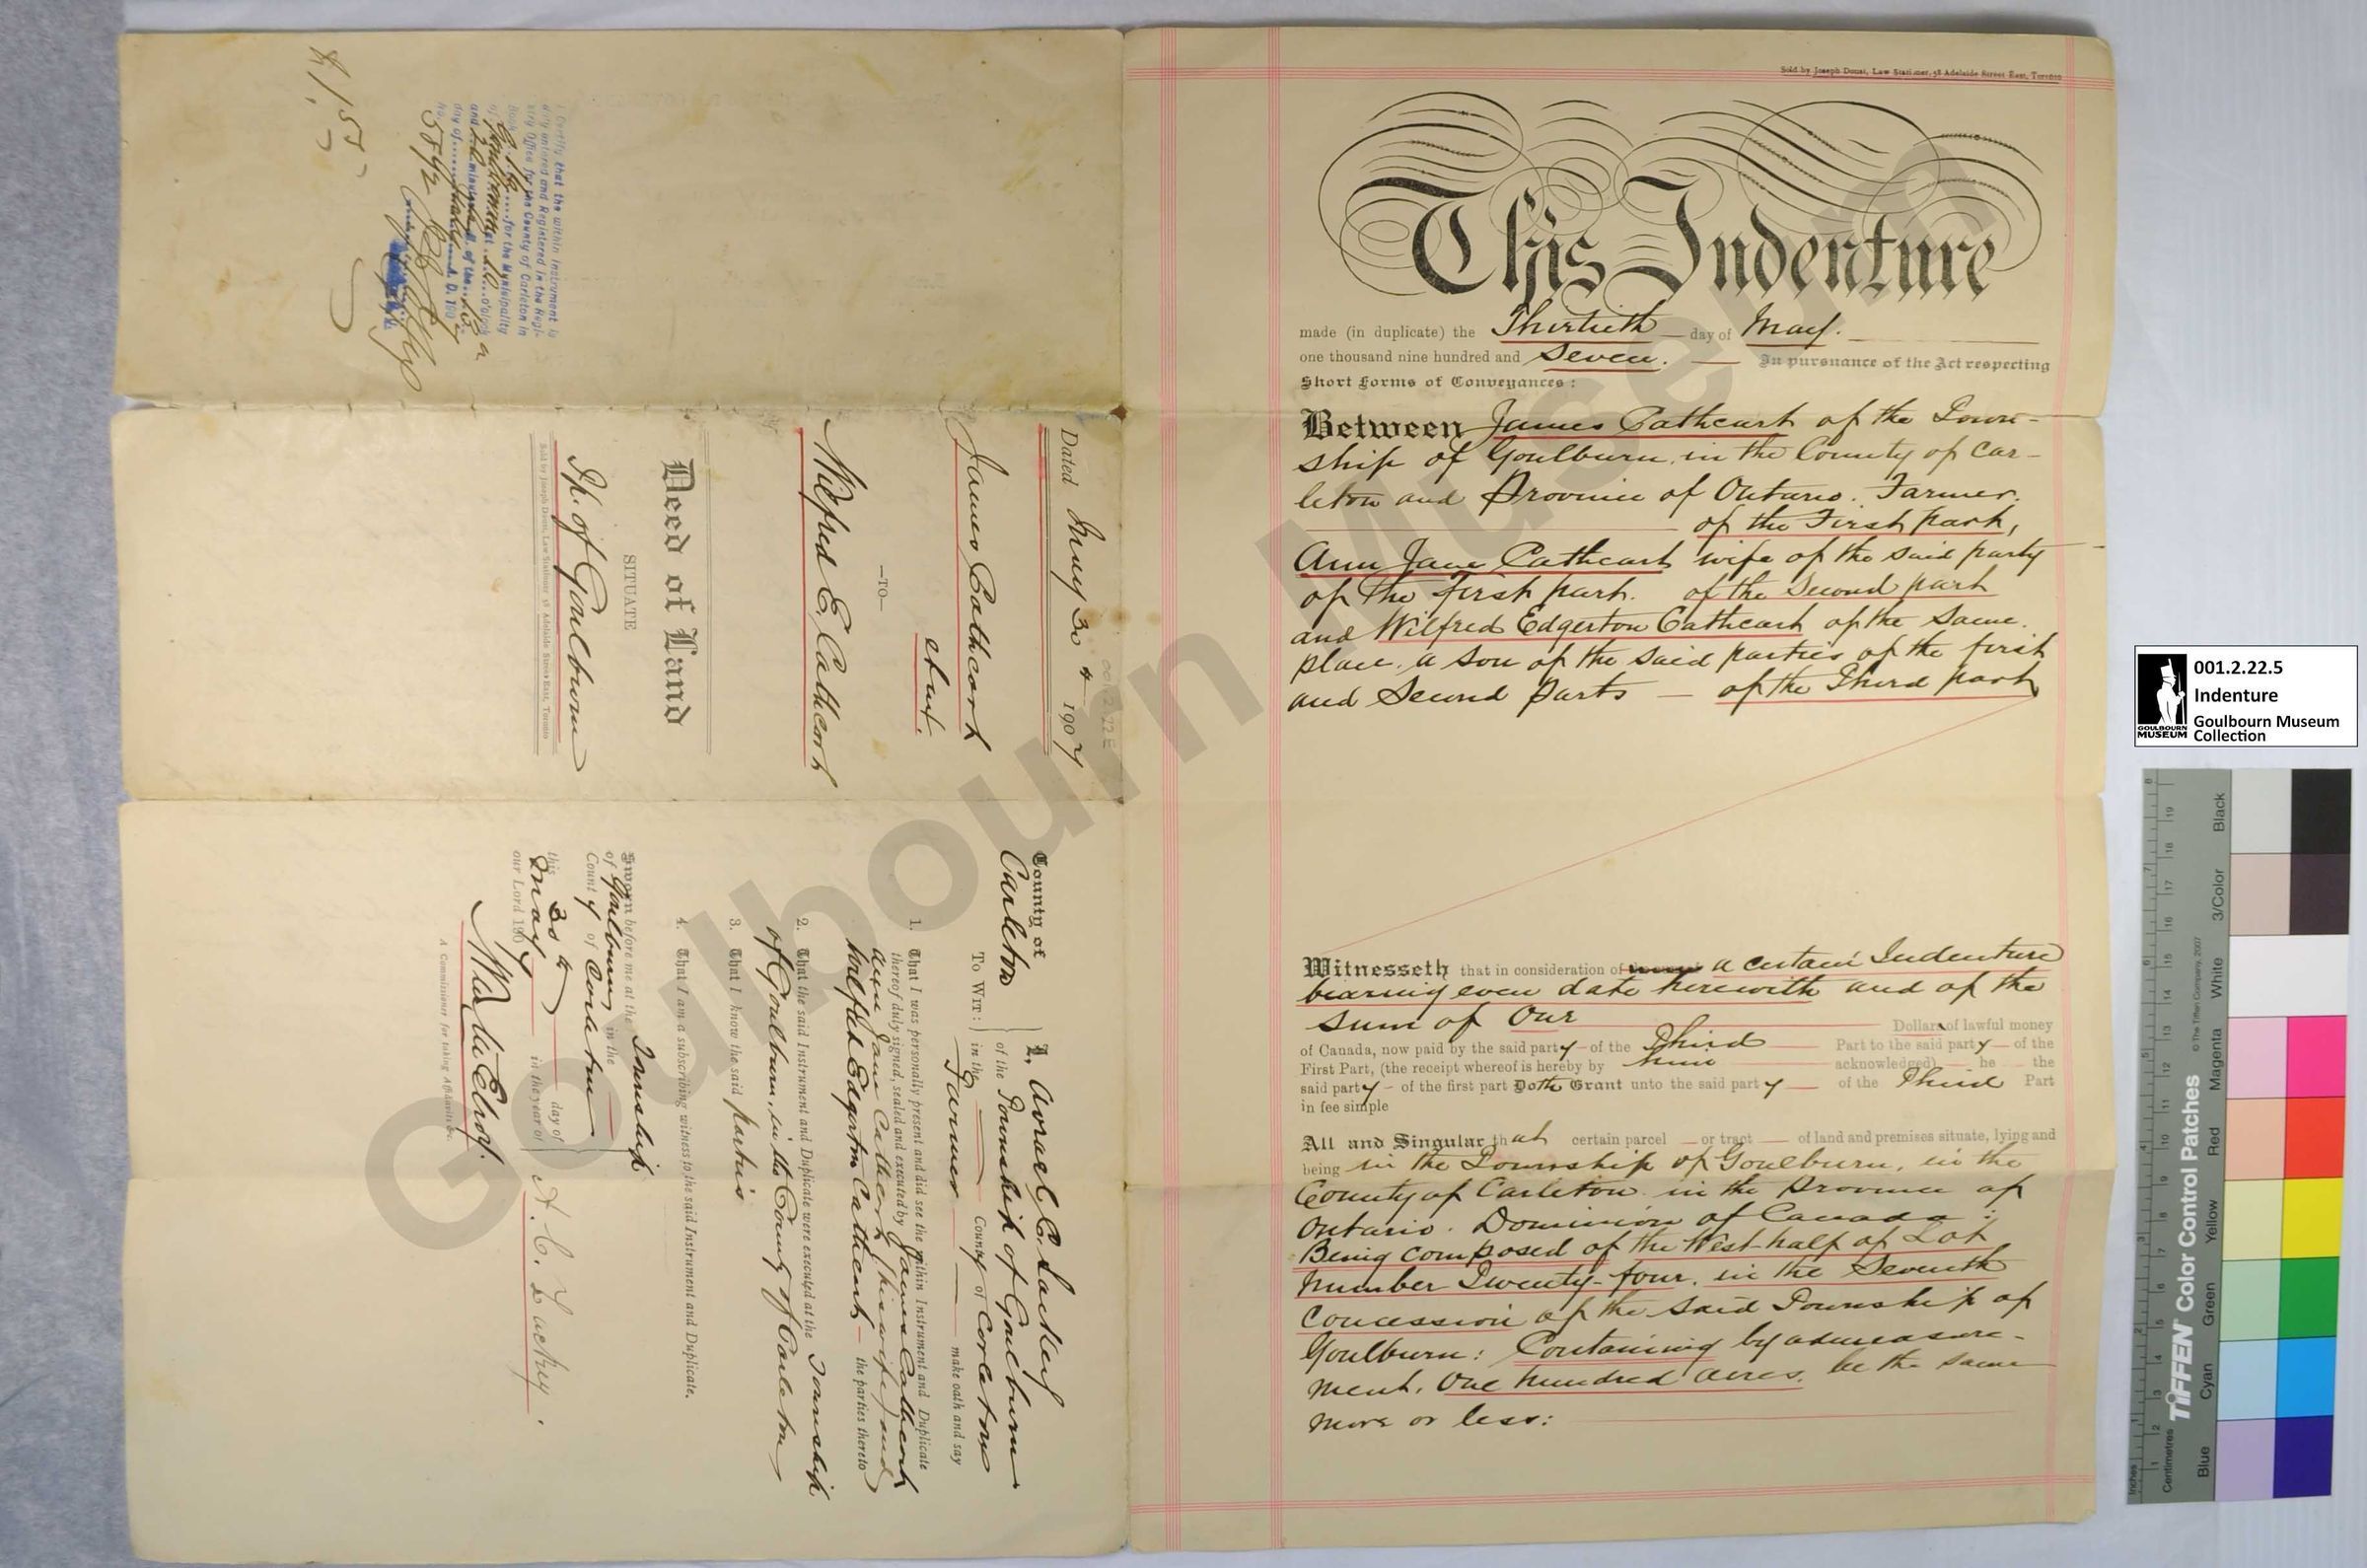 Sold by Joseph Doust, Law Stationer, 58 Adelaide Street East, Toronto
This Indenture
made (in duplicate) the Thirtieth day of May.
one thousand nine hundred and Seven. In pursuance of the Act respecting
Short Forms of Conveyances:
Between James Cathcart of the Town-
ship of Goulburn in the County of Car-
leton and Province of Ontario. Farmer.
of the First part,
Ann Jane Cathcart wife of the said party
of the First part. of the Second part
and Wilfred Edgerton Cathcart of the Same
place, a son of the said parties of the first
and Second parts — of the Third part
Witnesseth that in consideration of a certain Indenture
bearing even date herewith and of the
sum of One Dollars of lawful money
of Canada, now paid by the said party of the Third Part to the said party of the
First Part, (the receipt whereof is hereby by him acknowledged) he the
said party of the first part Doth Grant unto the said party of the Third Part
in fee simple
All and Singular that certain parcel or tract of land and premises situate, lying and
being in the Township of Goulburn, in the
County of Carleton in the Province of
Ontario. Dominion of Canada:
Being composed of the West-half of Lot
Number Twenty-four, in the Seventh
Concession of the said Township of
Goulburn: Containing by admeasure-
ment, One hundred acres, be the same
more or less:
I Certify that the within Instrument is
duly entered and Registered in the Regi-
stry Office for the County of Carleton in
Book for the Municipality
of Goulbourn at 10 o'clock
and minutes of the
day of A. D. 190
No. 5892
Dated May 30th 1907
001.2.22E
James Cathcart
et ux.
—TO—
Wilfred E. Cathcart
Deed of Land
SITUATE
Tp. of Goulburn
Sold by Joseph Doust, Law Stationer 58 Adelaide Street East, Toronto
County of
Carleton
To Wit:
I, Avrael C. Lackey
of the Township of Goulburn
in the County of Carleton
Farmer make oath and say
1. That I was personally present and did see the within Instrument and Duplicate
thereof duly signed, sealed and executed by James Cathcart
Ann Jane Cathcart, his wife, and
Wilfred Edgerton Cathcart — the parties thereto
2. That the said Instrument and Duplicate were executed at the Township
of Goulburn, in the County of Carleton
3. That I know the said parties
4. That I am a subscribing witness to the said Instrument and Duplicate.
Sworn before me at the Township
of Goulburn in the
County of Carleton
this 30th day of
May in the year of
our Lord 1907
A. C. Lackey.
A Commissioner for taking Affidavits.
001.2.22.5
Indenture
Goulbourn Museum
Collection
GOULBOURN
MUSEUM
Goulbourn Museum
TIFFEN Color Control Patches
© The Tiffen Company, 2007
Centimetres
Inches
Blue
Cyan
Green
Yellow
Red
Magenta
White
3/Color
Black